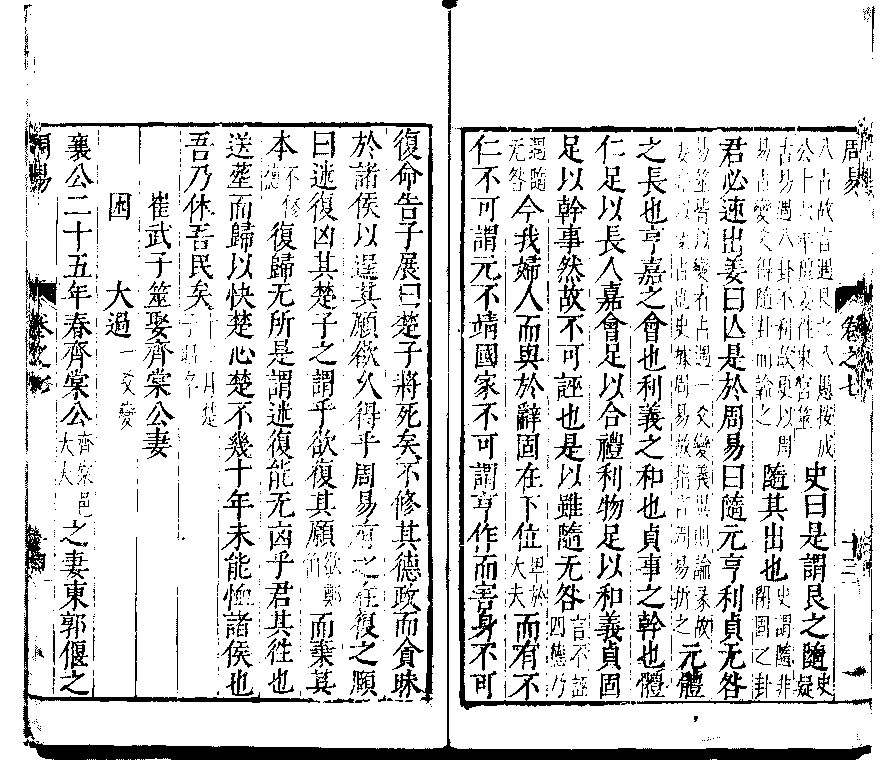 周易 卷之七 十三
八占故言遇艮之八愚按成
史曰是謂艮之隨史疑
古易遇八卦不利故更以周
易占變爻得隨卦而論之
隨其出也史謂隨非
閉固之卦
君必速出姜曰亡是於周易曰隨元亨利貞无咎
易筮皆以變者占遇一爻變義異則論彖故
姜亦以彖占也史據周易故指言周易折之
元體
之長也亨嘉之會也利義之和也貞事之幹也體
仁足以長人嘉會足以合禮利物足以和義貞固
足以幹事然故不可誣也是以雖隨无咎言不誣四德乃
遇隨无咎今我婦人而與於辭固在下位卑於大夫而有不
仁不可謂元不靖國家不可謂亨作而害身不可
復命告子展曰楚子將死矣不修其德政而貪昧
於諸侯以逞其願欲久得乎周易有之在復之頤
曰迷復凶其楚子之謂乎欲復其願欲鄭而棄其
本不修德復歸无所是謂迷復能无凶乎君其徃也
送塟而歸以快楚心楚不幾十年未能恤諸侯也
吾乃休吾民矣十二月楚子昭卒
崔武子筮娶齊棠公妻
困 大過一爻變
襄公二十五年春齊棠公齊棠邑大夫之妻東郭偃之
周易 卷之七